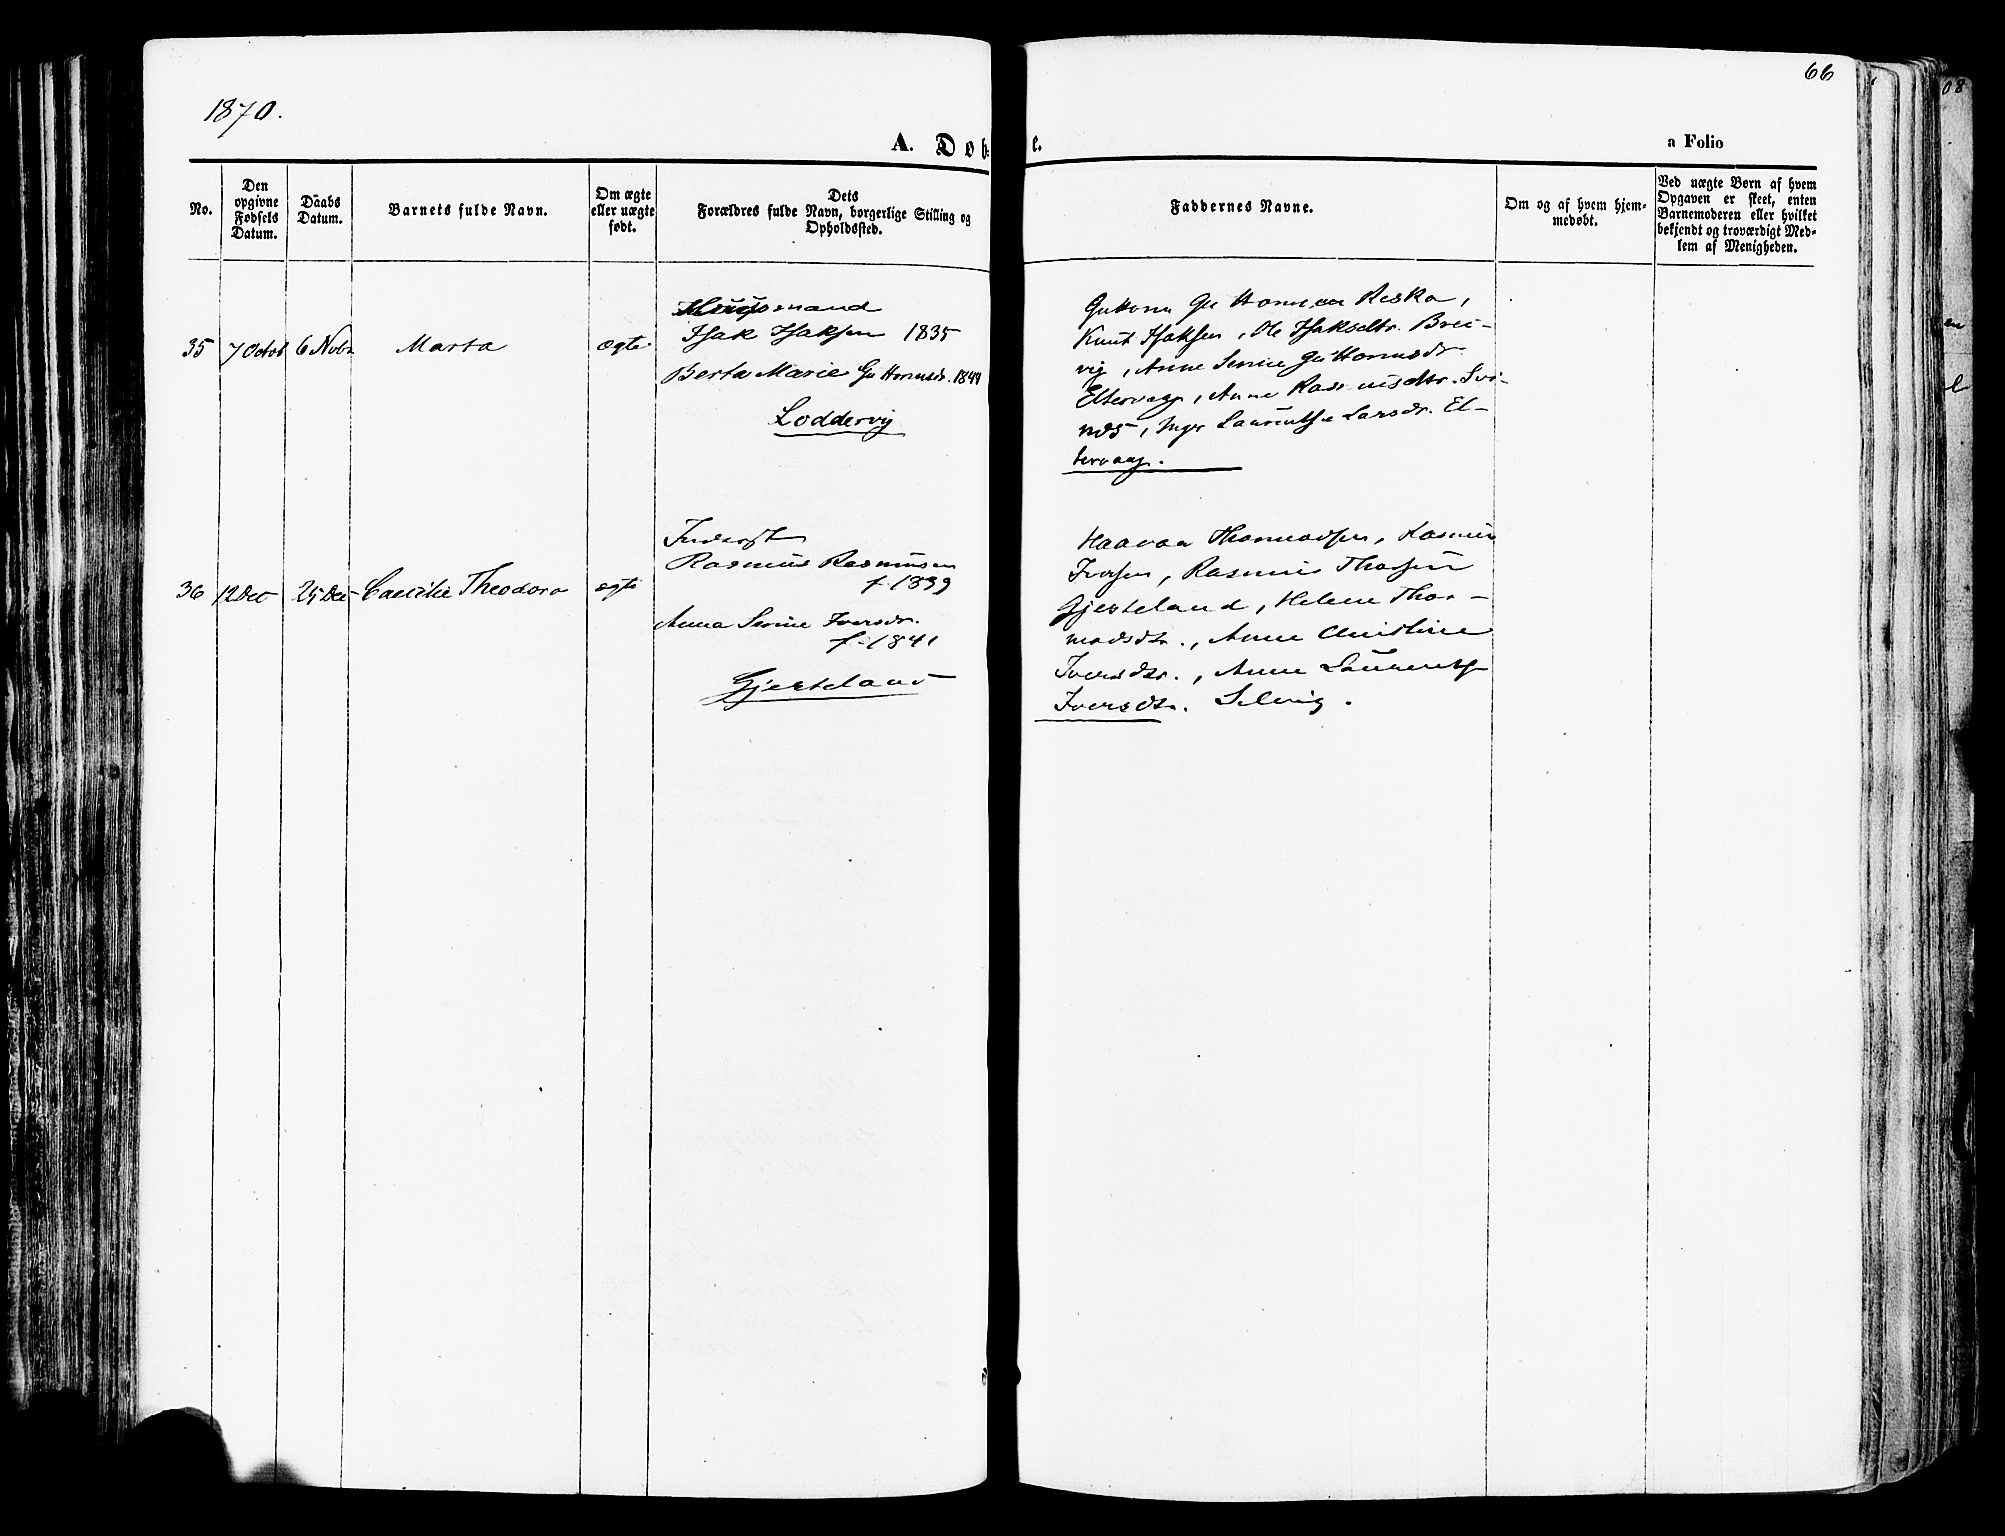 1870.
66
A. Døb
e.
a Folio
08
No.
Den
opgivne
Fødsels
Datum.
Daabs
Datum.
Barnets fulde Navn.
Om ægte
eller uægte
født.
Dets
Forældres fulde Navn, borgerlige Stilling og
Opholdssted.
Faddernes Navne.
Om og af hvem hjem-
medøbt.
Ved uægte Børn af hvem
Opgaven er skeet, enten
Barnemoderen eller hvilket
bekjendt og troværdigt Med-
lem af Menigheden.
35
7 Octob
6 Nobr
Marta
ægte
Huusmand
Isak Isaksen 1835
Berta Marie Guttormsdr. 1844
Loddervig
Guttorm Guttormsen Reska,
Knut Isaksen, Ole Isaksdtr. Brei-
vig, Anne Serine Guttormsdr.
Eltervaag, Anne Rasmusdtr.
Inger Lauritse Larsdr. El-
tervaag.
36
12 Dec
25 Dec
Caecilie Theodora
ægte
Inderst
Rasmus Rasmusen
f. 1839
Anna Serine Iversdr.
f. 1841
Gjesteland
Haavar Thormodsen, Rasmus
Iversen, Rasmus Thorsen
Gjesteland, Helene Thor-
modsdtr., Anne Christine
Iversdtr., Anne Lauritse
Iversdtr. Selvig.